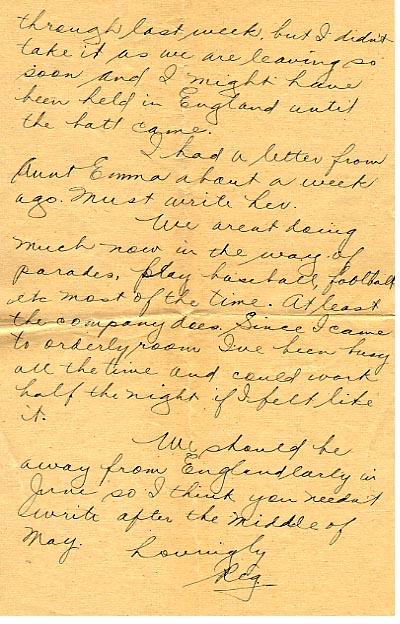 through last week, but I didn't
take it as we are leaving so
soon and I might have
been held in England until
the batt came.
I had a letter from
Aunt Emma about a week
ago. Must write her.
We arent doing
much now in the way of
parades, play baseball, football
etc most of the time. At least
the company does. Since I came
to orderly room I've been busy
all the time and could work
half the night if I felt like
it.
We should be
away from England early in
June so I think you needn't
write after the middle of
May.
Lovingly
Reg.